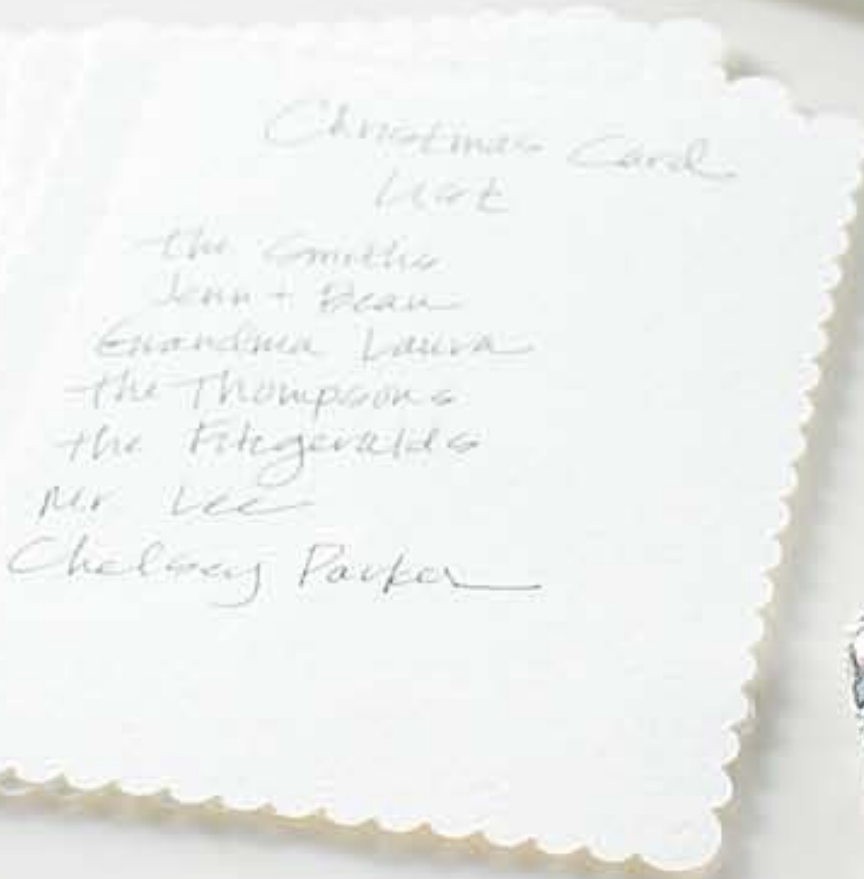 Christmas Card
List
the Smiths
Jenn + Beau
Grandma Laura
the Thompsons
the Fitzgeralds
Mr Lee
Chelsey Parker